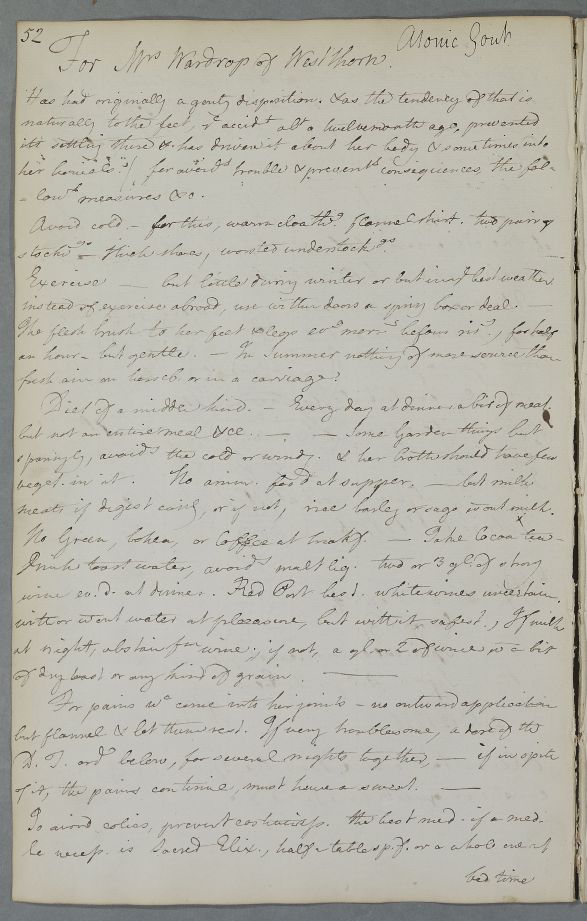 52
Atonic Gout
For Mrs Wardrop of Westhorn.
Has had originally a gouty disposition. & as the tendency of that is
naturally to the feet, accidt abt a twelvemonth ago, prevented
its settling there & has driven it about her body & sometimes into
her bowels. for avoidg trouble & preventg consequences, the fol-
-lowg measures &c.
Avoid cold. - for this, warm cloathg flannel shirt. two pair of
stockgs - thick shoes, worsted understockgs
Exercise — but little during winter or but in best weather
instead of exercise abroad, use within doors a spring box or deal. —
The flesh brush to her feet & legs evy morng before risg, for half
an hour - but gentle. — In Summer nothing of more source than
fresh air on horseb. or in a carriage.
Diet of a middle kind. — Every day at dinner a bit of meat.
but not an entire meal &ce. — — Some Garden things but
sparingly, avoidg the cold or windy. & her broth should have few
veget. in it. No anim. food at supper. — but milk
meats if digest easily, or if not, rice barley or sago wout milk.
No Green, bohea, or Coffee at breakf. — Take Cocoa tea -
Drink toast water, avoidg malt liq. two or 3 gl. of strong
wine ev. d. at dinner. Red Port best. white wines uncertain
with or wout water at pleasure, but with it safest, If milk
at night, abstain fm wine, if not, a gl. or 2 of wine w a bit
of dry toast or any kind of grain. —
For pains wc come into her joints - no outward application
but flannel & let them rest. If very troublesome, a dose of the
D. T. ordd below, for several nights together, — if in spite
of it, the pains continue, must have a sweat. —
To avoid colics, prevent costiveness. the best med. if a med.
be necess. is Sacred Elix., half a tablesp.f. or a whole one at
bed time